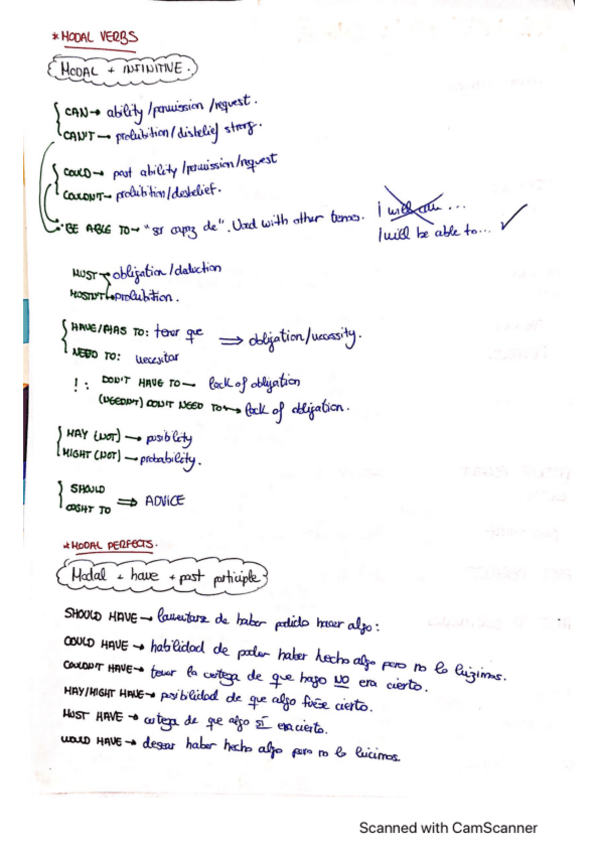 *MODAL VERBS
MODAL + INFINITIVE.
CAN → ability/permission/request.
CAN'T → prohibition/disbelief strong.
COULD → past ability/permission/request
COULDN'T → prohibition/disbelief.
BE ABLE TO → "ser capaz de". Used with other tenses. I will can ...
I will be able to...
MUST → obligation/deduction
MOSTN'T → prohibition.
HAVE/HAS TO: tener que ⇒ obligation/necessity.
NEED TO: necesitar
!: DON'T HAVE TO → lack of obligation
(NEEDN'T) DON'T NEED TO → lack of obligation.
MAY (NOT) → posibility
MIGHT (NOT) → probability.
SHOULD
OUGHT TO ⇒ ADVICE
*MODAL PERFECTS.
Modal + have + past participle
SHOULD HAVE → lamentarse de haber podido hacer algo:
COULD HAVE → habilidad de poder haber hecho algo pero no lo hizimos.
COULDN'T HAVE → tener la certeza de que hago NO era cierto.
MAY/MIGHT HAVE → posibilidad de que algo fuese cierto.
MUST HAVE → certeza de que algo SÍ era cierto.
WOULD HAVE → desear haber hecho algo pero no lo hicimos.
Scanned with CamScanner